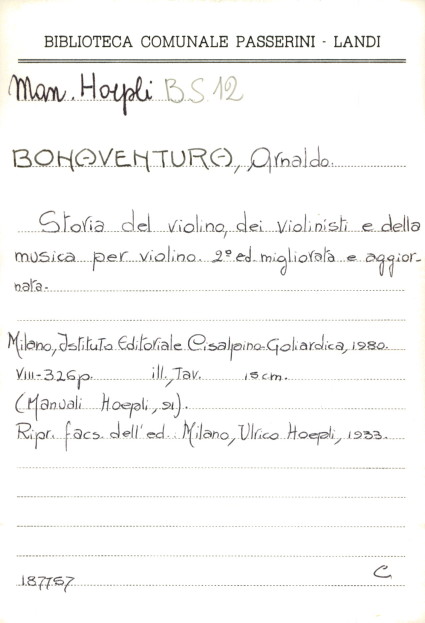 BIBLIOTECA COMUNALE PASSERINI - LANDI
Man. Hoepli BS 12
BONAVENTURA, Arnaldo.
Storia del violino, dei violinisti e della
musica per violino. 2ª ed. migliorata e aggior-
nata.
Milano, Istituto Editoriale Cisalpino-Goliardica, 1980.
VIII-326p. ill., Tav. 15cm.
(Manuali Hoepli, 91).
Ripr. facs. dell'ed.: Milano, Ulrico Hoepli, 1933.
187757 C.